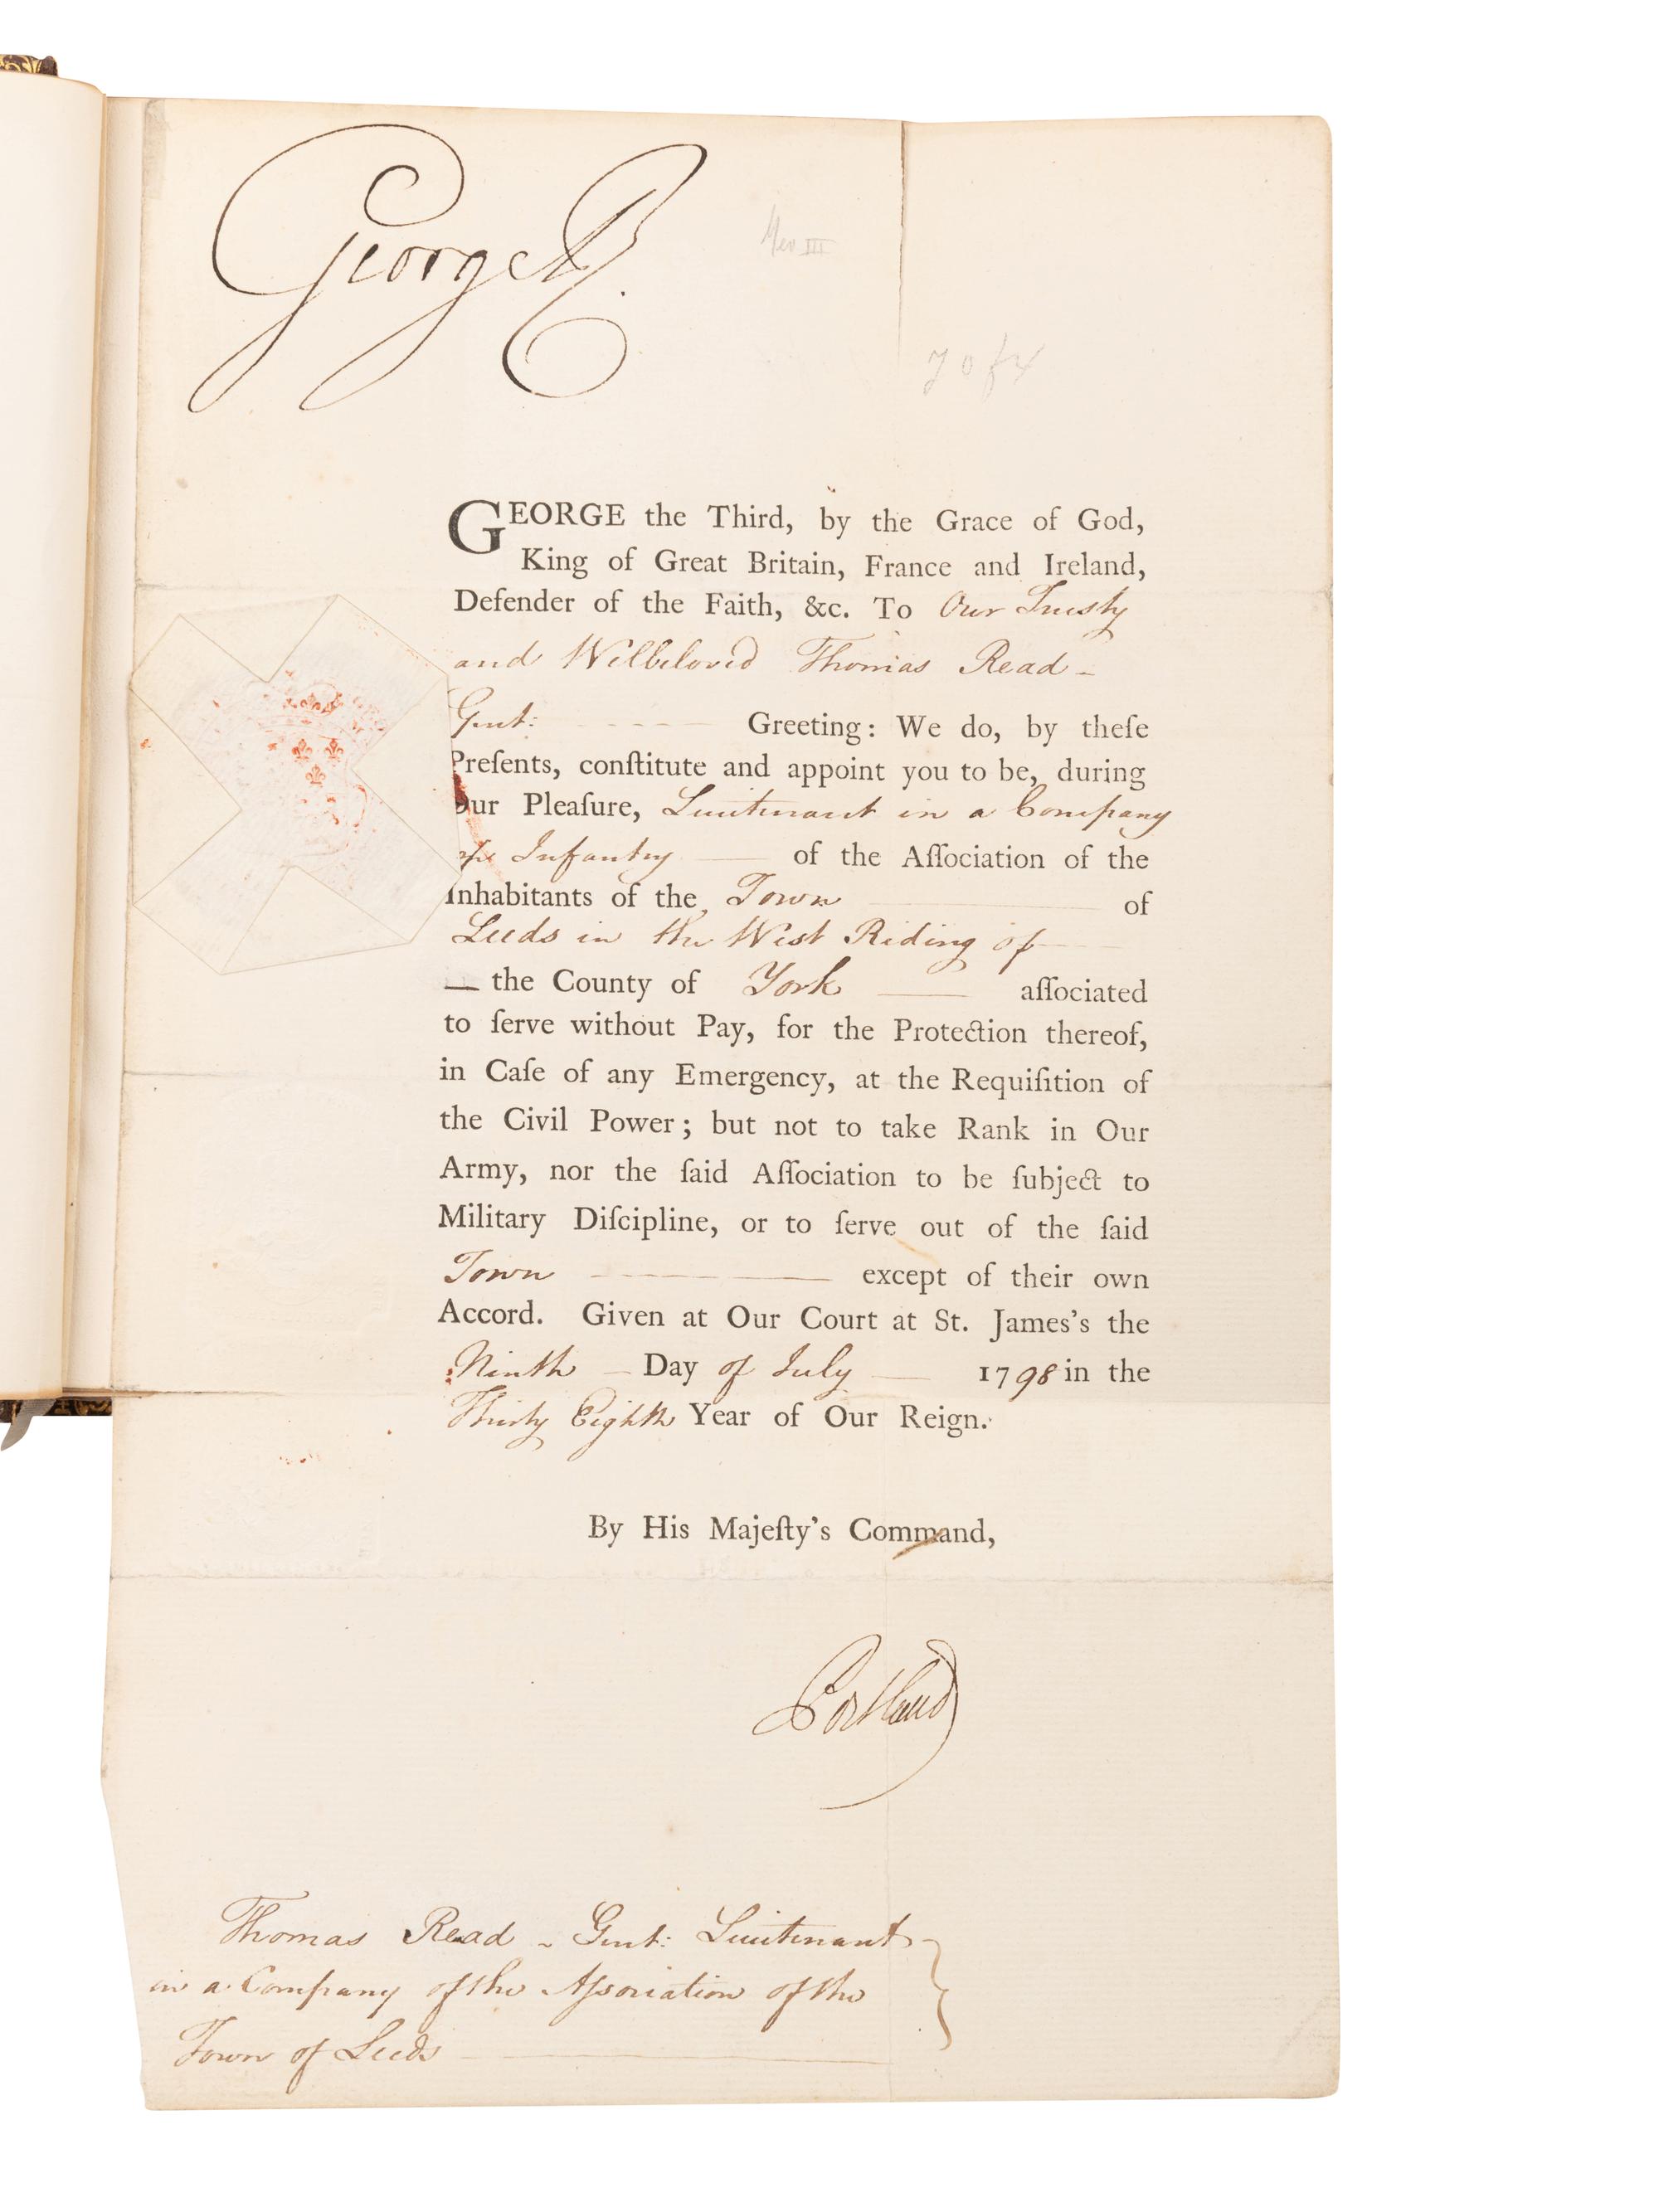 George R
Geo III
GEORGE the Third, by the Grace of God,
King of Great Britain, France and Ireland,
Defender of the Faith, &c. To Our Trusty
and Welbeloved Thomas Read -
Gent: Greeting: We do, by theſe
Preſents, conſtitute and appoint you to be, during
Our Pleaſure, Lieutenant in a Company
of Infantry — of the Aſſociation of the
Inhabitants of the Town — of
Leeds in the West Riding of —
— the County of York — aſſociated
to ſerve without Pay, for the Protection thereof,
in Caſe of any Emergency, at the Requiſition of
the Civil Power; but not to take Rank in Our
Army, nor the ſaid Aſſociation to be ſubject to
Military Diſcipline, or to ſerve out of the ſaid
Town — except of their own
Accord. Given at Our Court at St. James's the
Ninth — Day of July — 1798 in the
Thirty Eighth Year of Our Reign.
By His Majeſty's Command,
Portland
Thomas Read - Gent: Lieutenant
in a Company of the Aſsociation of the
Town of Leeds —